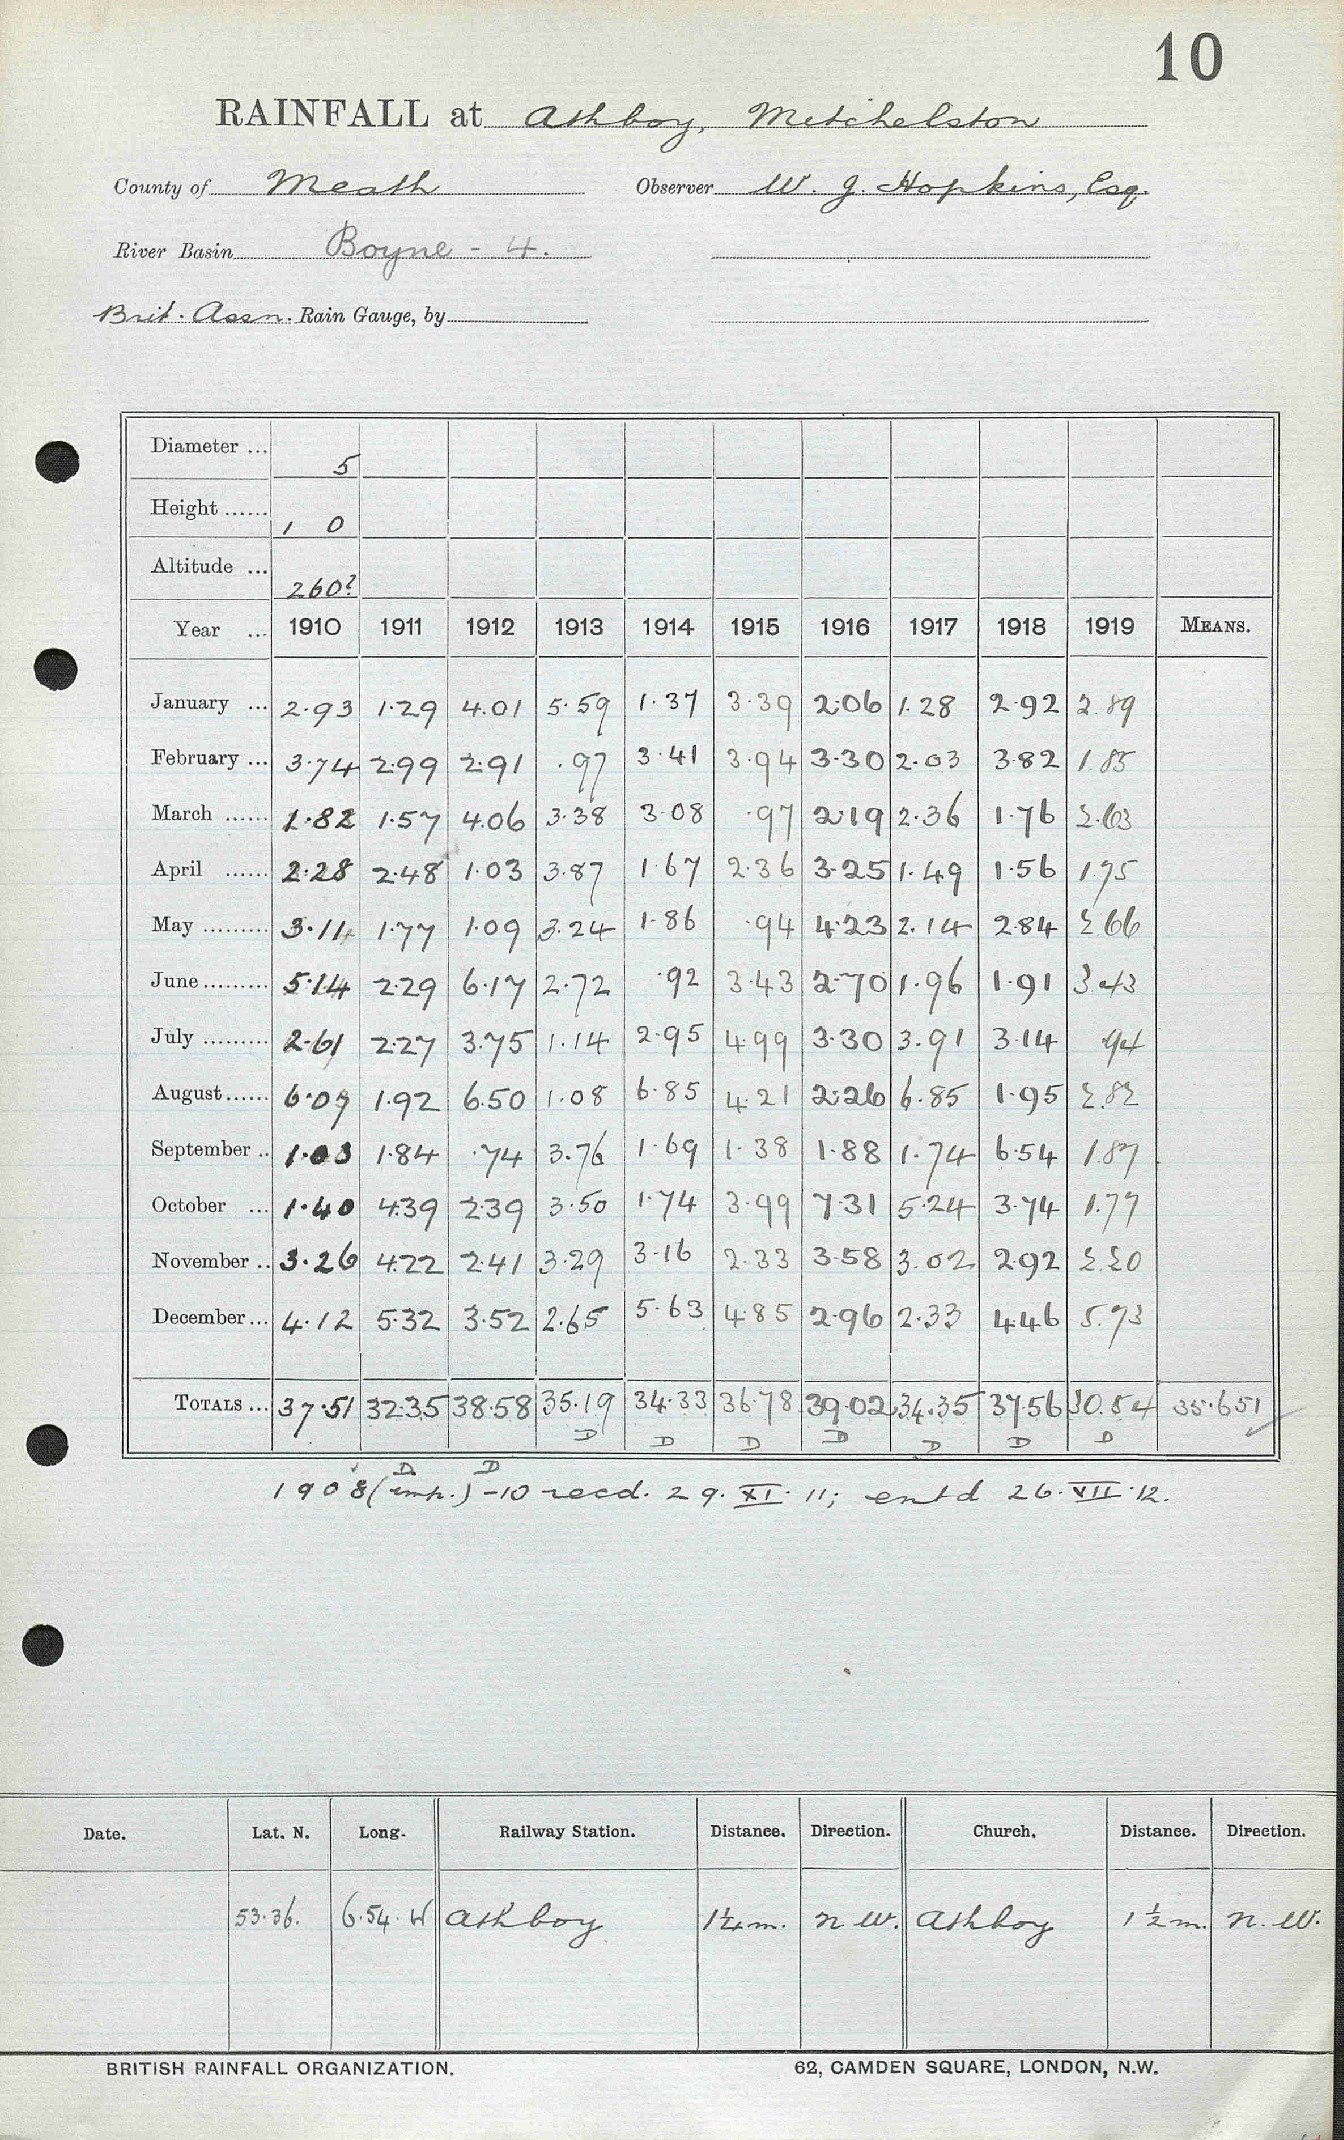 10
RAINFALL at Athboy, Mitchelston
County of Meath Observer W. J. Hopkins, Esq.
River Basin Boyne - 4.
Brit. Assn. Rain Gauge, by
Diameter ... 5
Height ...... 1 0
Altitude ... 260?
Year ... 1910 1911 1912 1913 1914 1915 1916 1917 1918 1919 MEANS.
January ... 2.93 1.29 4.01 5.59 1.37 3.39 2.06 1.28 2.92 2.89
February ... 3.74 2.99 2.91 .97 3.41 3.94 3.30 2.03 3.82 1.85
March ...... 1.82 1.57 4.06 3.38 3.08 .97 2.19 2.36 1.76 2.63
April ...... 2.28 2.48 1.03 3.87 1.67 2.36 3.25 1.49 1.56 1.75
May ......... 3.11 1.77 1.09 3.24 1.86 .94 4.23 2.14 2.84 2.66
June ......... 5.14 2.29 6.17 2.72 .92 3.43 2.70 1.96 1.91 3.43
July ......... 2.61 2.27 3.75 1.14 2.95 4.99 3.30 3.91 3.14 .94
August ...... 6.07 1.92 6.50 1.08 6.85 4.21 2.26 6.85 1.95 2.82
September .. 1.03 1.84 .74 3.76 1.69 1.38 1.88 1.74 6.54 1.87
October ... 1.40 4.39 2.39 3.50 1.74 3.99 7.31 5.24 3.74 1.77
November .. 3.26 4.22 2.41 3.29 3.16 2.33 3.58 3.02 2.92 2.20
December ... 4.12 5.32 3.52 2.65 5.63 4.85 2.96 2.33 4.46 5.73
TOTALS ... 37.51 32.35 38.58 35.19 34.33 36.78 39.02 34.35 37.56 30.54 35.651
D D D D D D D D D
1908 (imp.) -10 recd. 29. XI. 11; entd 26. VII. 12.
Date. Lat. N. Long. Railway Station. Distance. Direction. Church. Distance. Direction.
53.36. 6.54. W Athboy 1¼ m. N W. Athboy 1½ m. N. W.
BRITISH RAINFALL ORGANIZATION. 62, CAMDEN SQUARE, LONDON, N.W.